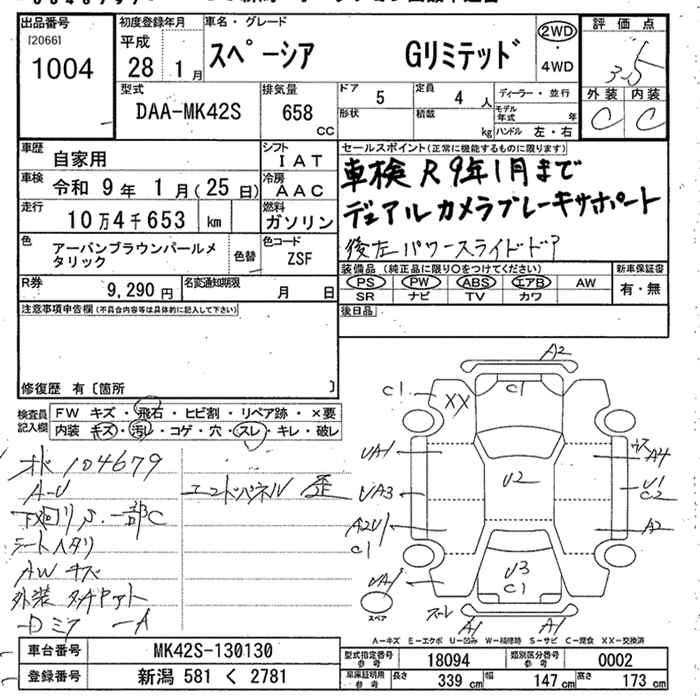 出品番号
[2066]
1004
初度登録年月
平成
28 1月
車名・グレード
スペーシア Gリミテッド
2WD
・
4WD
評価点
3.5
外装 内装
C C
型式
DAA-MK42S
排気量
658 CC
ドア
5
定員
4 人
形状
積載
kg
ディーラー・並行
モデル年式 年
ハンドル 左・右
車歴
自家用
シフト
IAT
車検
令和 9年 1月(25日)
冷房
AAC
走行
10万4千653 km
燃料
ガソリン
色
アーバンブラウンパールメタリック
色替
色コード
ZSF
R券
9,290円
名変通知期限
月 日
セールスポイント(正常に機能するものに限ります)
車検 R9年1月まで
デュアルカメラブレーキサポート
後左パワースライドドア
装備品(純正品に限り〇をつけてください)
PS PW ABS エアB AW
SR ナビ TV カワ
新車保証書
有・無
後日品
注意事項申告欄(不具合内容等は具体的に記入して下さい)
修復歴 有〔箇所 〕
検査員記入欄
FW キズ・飛石・ヒビ割・リペア跡・×要
内装 キズ・汚レ・コゲ・穴・スレ・キレ・破レ
104679
A-U
エンドパネル 歪
下回りS.一部C
シートヘタリ
AWキズ
外装
A2
C1
XX
C1
UA1
A4
U2
UA3
U1
C2
A2U1
C1
A2
U3
C1
UA1
スレ
A1
A1
スペア
A-キズ E-エクボ U-凹み W-補修跡 S-サビ C-腐食 XX-交換済
車台番号
MK42S-130130
登録番号
新潟 581 く 2781
型式指定番号
参考
18094
類別区分番号
参考
0002
車庫証明用
参考
長さ
339 cm
幅
147 cm
高さ
173 cm